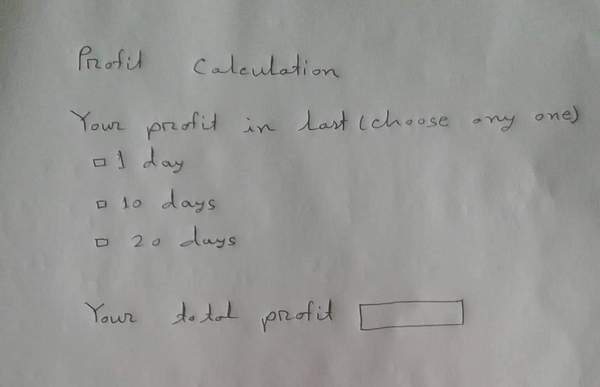 Profit Calculation
Your profit in last (choose any one)
1 day
10 days
20 days
Your total profit